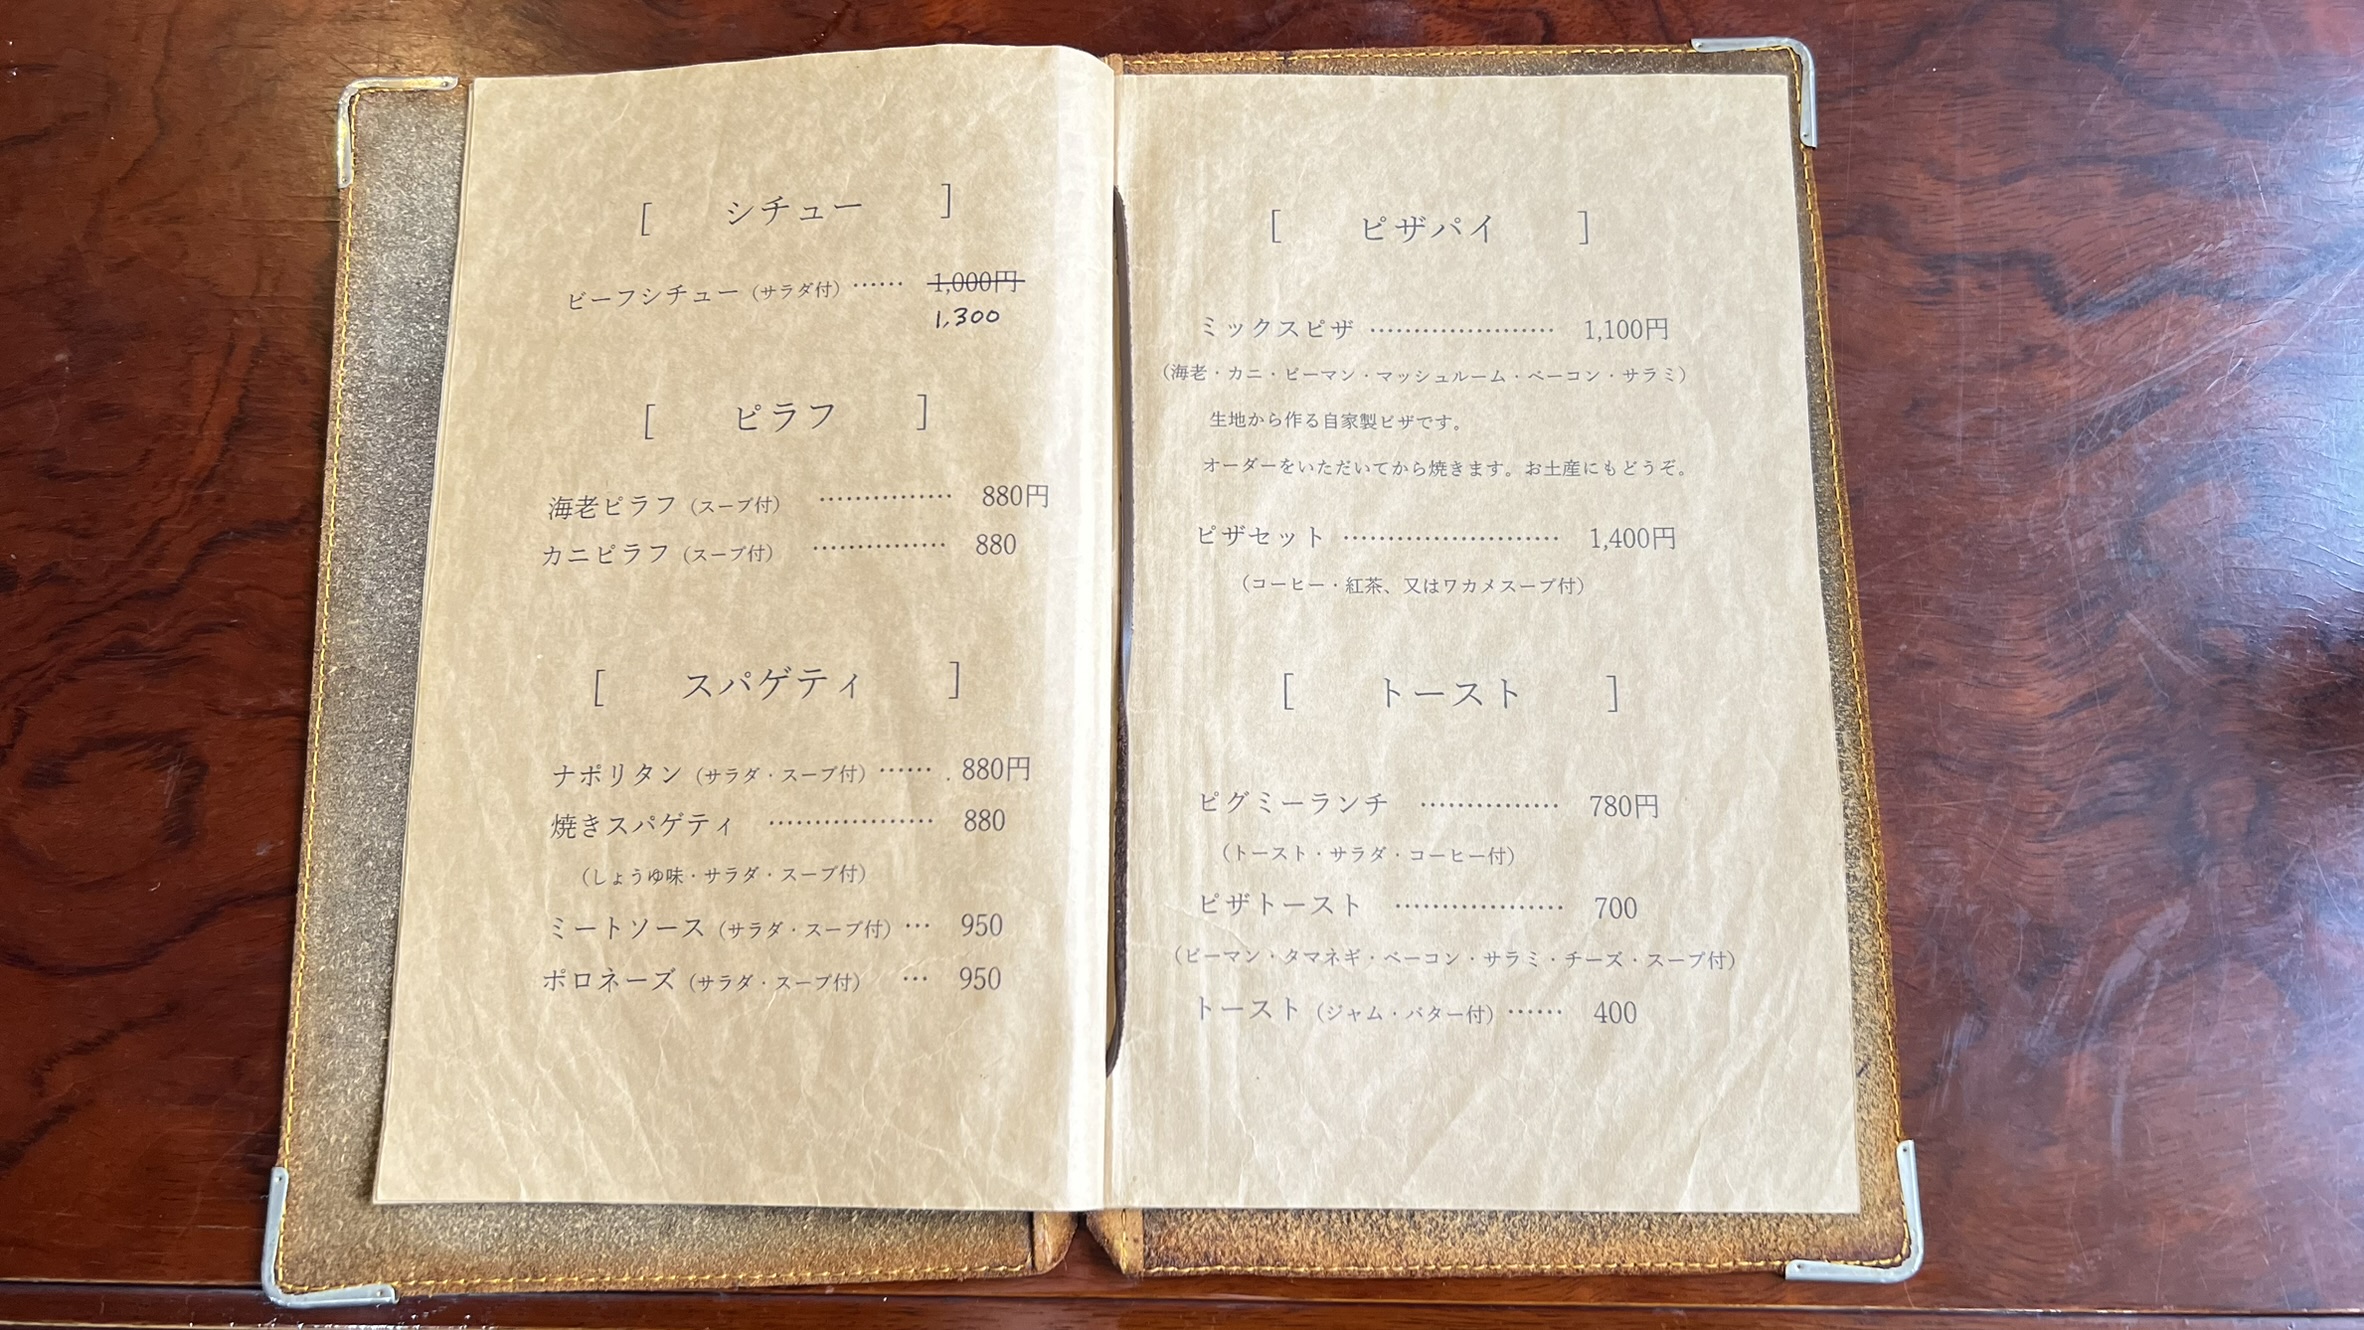 [ シチュー ]
ビーフシチュー（サラダ付）…… 1,000円
1,300
[ ピラフ ]
海老ピラフ（スープ付） …………… 880円
カニピラフ（スープ付） …………… 880
[ スパゲティ ]
ナポリタン（サラダ・スープ付）…… . 880円
焼きスパゲティ ……………… 880
（しょうゆ味・サラダ・スープ付）
ミートソース（サラダ・スープ付）… 950
ポロネーズ（サラダ・スープ付） … 950
[ ピザパイ ]
ミックスピザ ………………… 1,100円
（海老・カニ・ピーマン・マッシュルーム・ベーコン・サラミ）
生地から作る自家製ピザです。
オーダーをいただいてから焼きます。お土産にもどうぞ。
ピザセット …………………… 1,400円
（コーヒー・紅茶、又はワカメスープ付）
[ トースト ]
ピグミーランチ …………… 780円
（トースト・サラダ・コーヒー付）
ピザトースト ……………… 700
（ピーマン・タマネギ・ベーコン・サラミ・チーズ・スープ付）
トースト（ジャム・バター付）…… 400